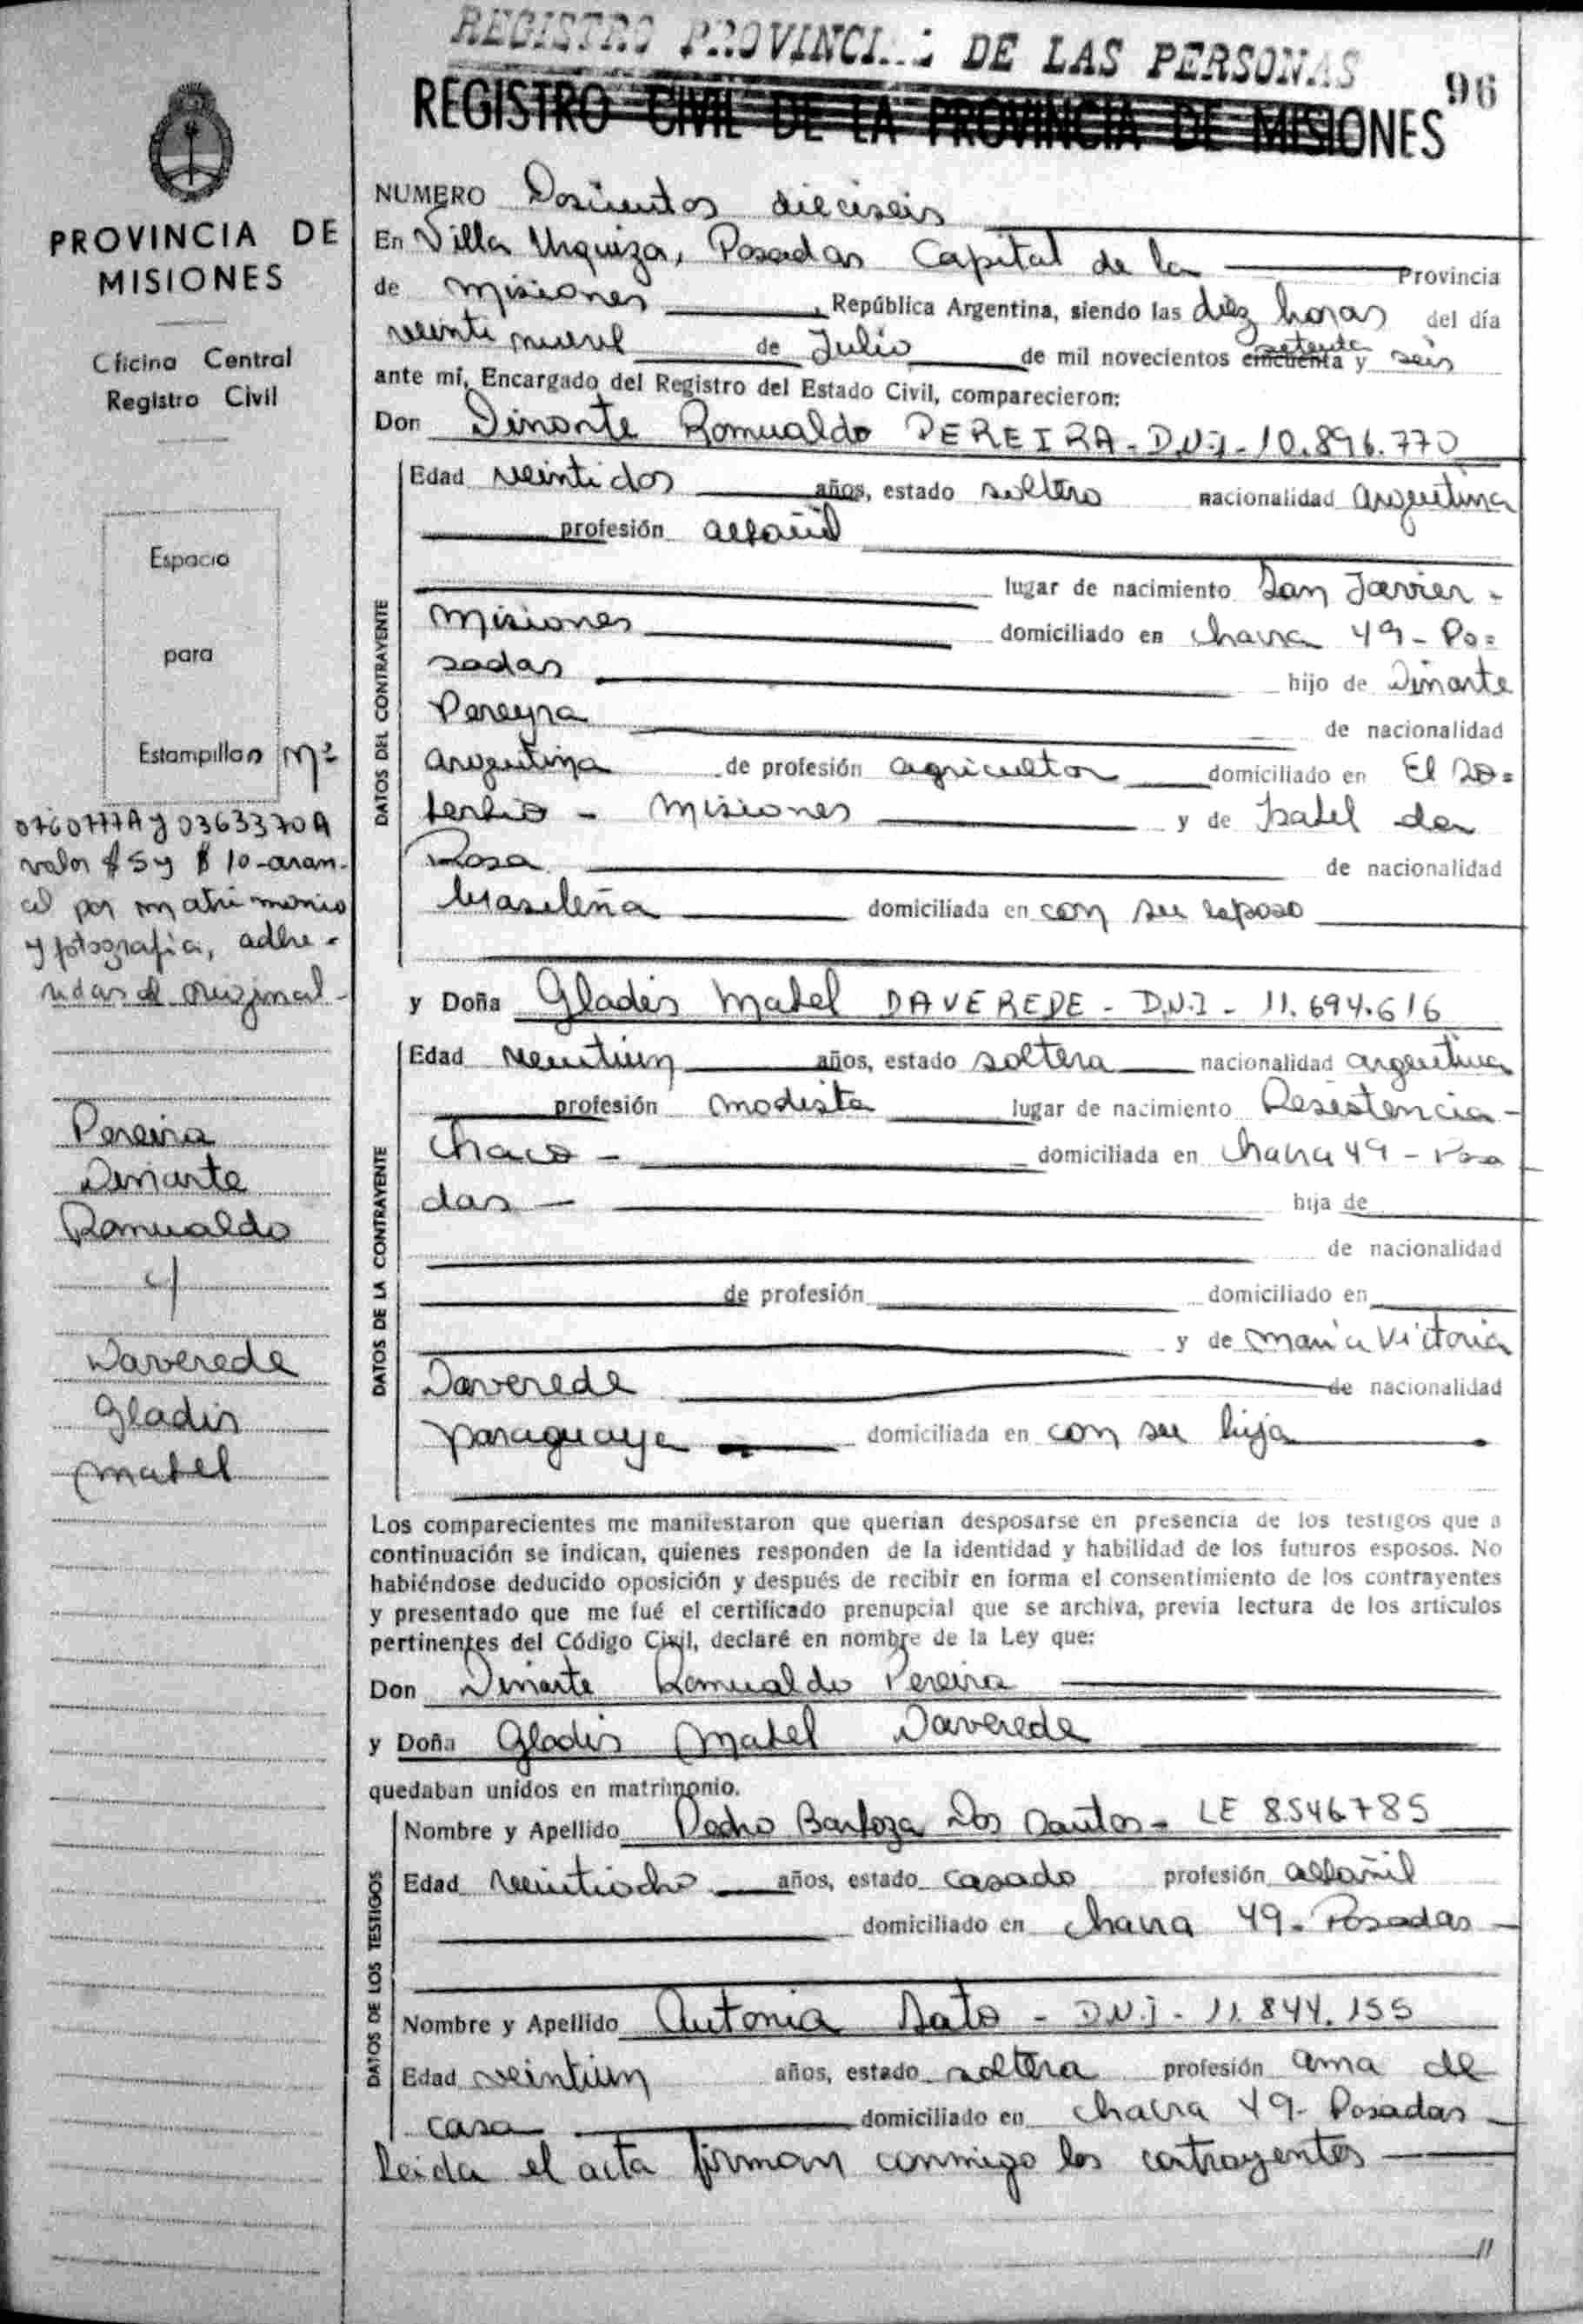 REGISTRO PROVINCI DE LAS PERSONAS
96
REGISTRO CIVIL DE LA PROVINCIA DE MISIONES
PROVINCIA DE
MISIONES
Oficina Central
Registro Civil
Espacio
para
Estampillas Nº
0760777A y 0363370A
valor $5 y $10-aran-
cel por matrimonio
y fotografía, adhe-
ridas al original-
Pereira
Dinarte
Romualdo
y
Daverede
Gladis
Mabel
NUMERO Doscientos dieciseis
En Villa Urquiza, Posadas Capital de la Provincia
de Misiones, República Argentina, siendo las diez horas del día
veintinueve de Julio de mil novecientos cincuenta setenta y seis
ante mí, Encargado del Registro del Estado Civil, comparecieron:
Don Dinarte Romualdo PEREIRA - D.N.I - 10.896.770
DATOS DEL CONTRAYENTE
Edad veintidos años, estado soltero nacionalidad argentina
profesión albañil
lugar de nacimiento San Javier -
Misiones domiciliado en chacra 49 - Po=
sadas hijo de Dinarte
Pereyra de nacionalidad
argentina de profesión agricultor domiciliado en El So=
berbio - Misiones y de Isabel da
Rosa de nacionalidad
brasileña domiciliada en con su esposo
y Doña Gladis Mabel DAVEREDE - D.N.I - 11.694.616
DATOS DE LA CONTRAYENTE
Edad veintiun años, estado soltera nacionalidad argentina
profesión modista lugar de nacimiento Resistencia -
Chaco - domiciliada en chacra 49 - Posa
das - hija de
de nacionalidad
de profesión domiciliado en
y de María Victoria
Daverede de nacionalidad
paraguaya domiciliada en con su hija
Los comparecientes me manifestaron que querían desposarse en presencia de los testigos que a
continuación se indican, quienes responden de la identidad y habilidad de los futuros esposos. No
habiéndose deducido oposición y después de recibir en forma el consentimiento de los contrayentes
y presentado que me fué el certificado prenupcial que se archiva, previa lectura de los artículos
pertinentes del Código Civil, declaré en nombre de la Ley que:
Don Dinarte Romualdo Pereira
y Doña Gladis Mabel Daverede
quedaban unidos en matrimonio.
DATOS DE LOS TESTIGOS
Nombre y Apellido Pedro Barboza Dos Santos - LE 8.546.785
Edad veintiocho años, estado casado profesión albañil
domiciliado en chacra 49 - Posadas -
Nombre y Apellido Antonia Sato - D.N.I - 11.844.155
Edad veintiun años, estado soltera profesión ama de
casa domiciliado en chacra 49 - Posadas -
Leida el acta firman conmigo los contrayentes
//